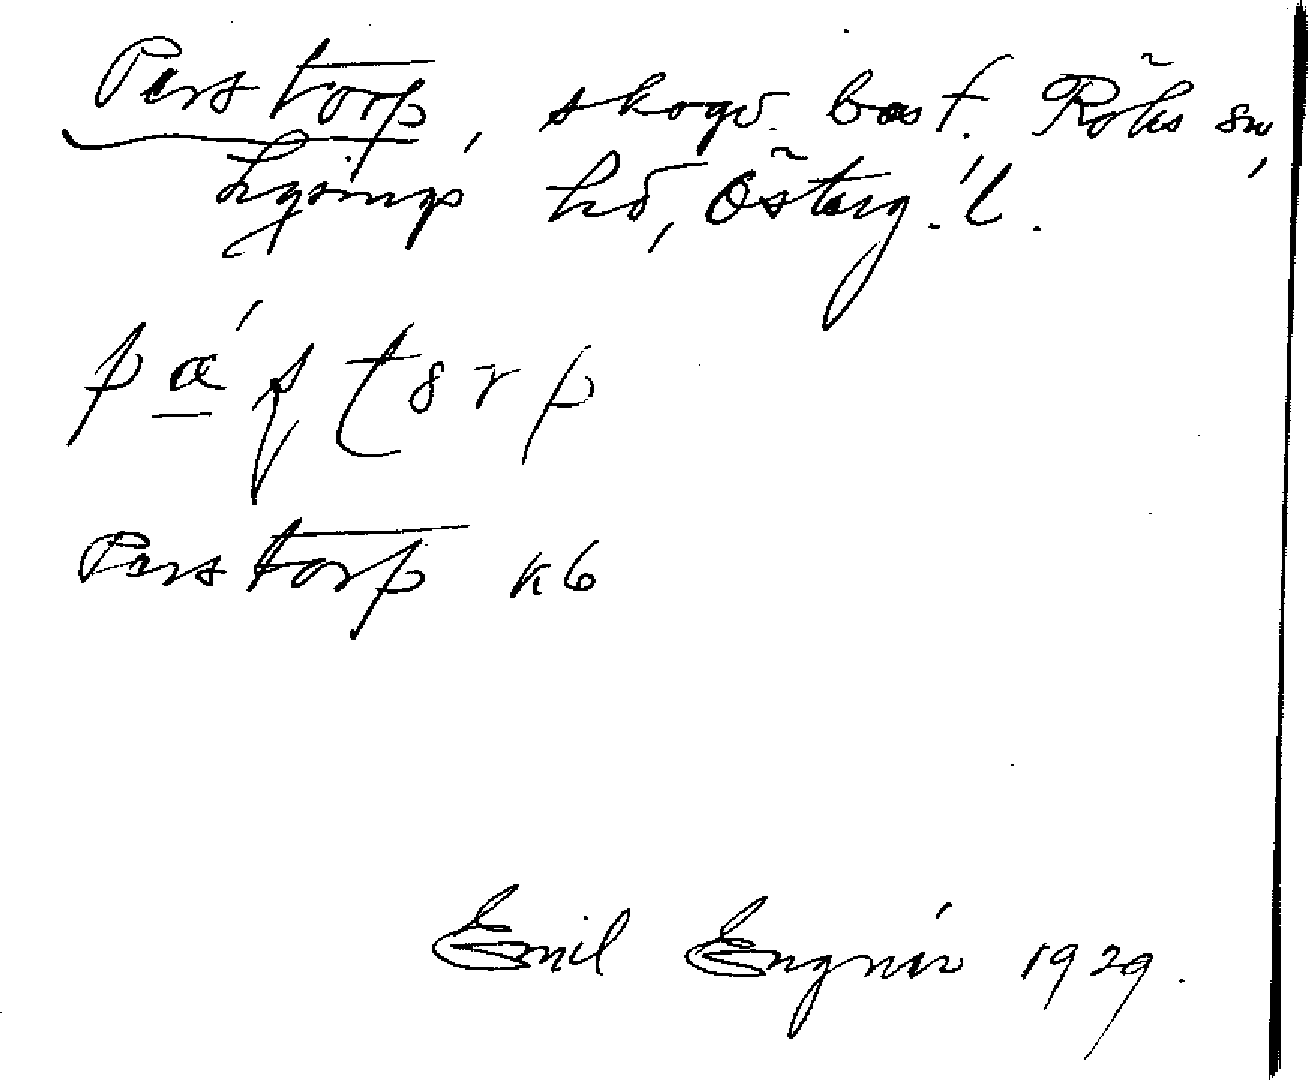 Perstorp, skogv. bost. Röks sn,
Lysings hd, Österg. l.
pæ´ştorp
Perstorp kb
Emil Engnér 1929.